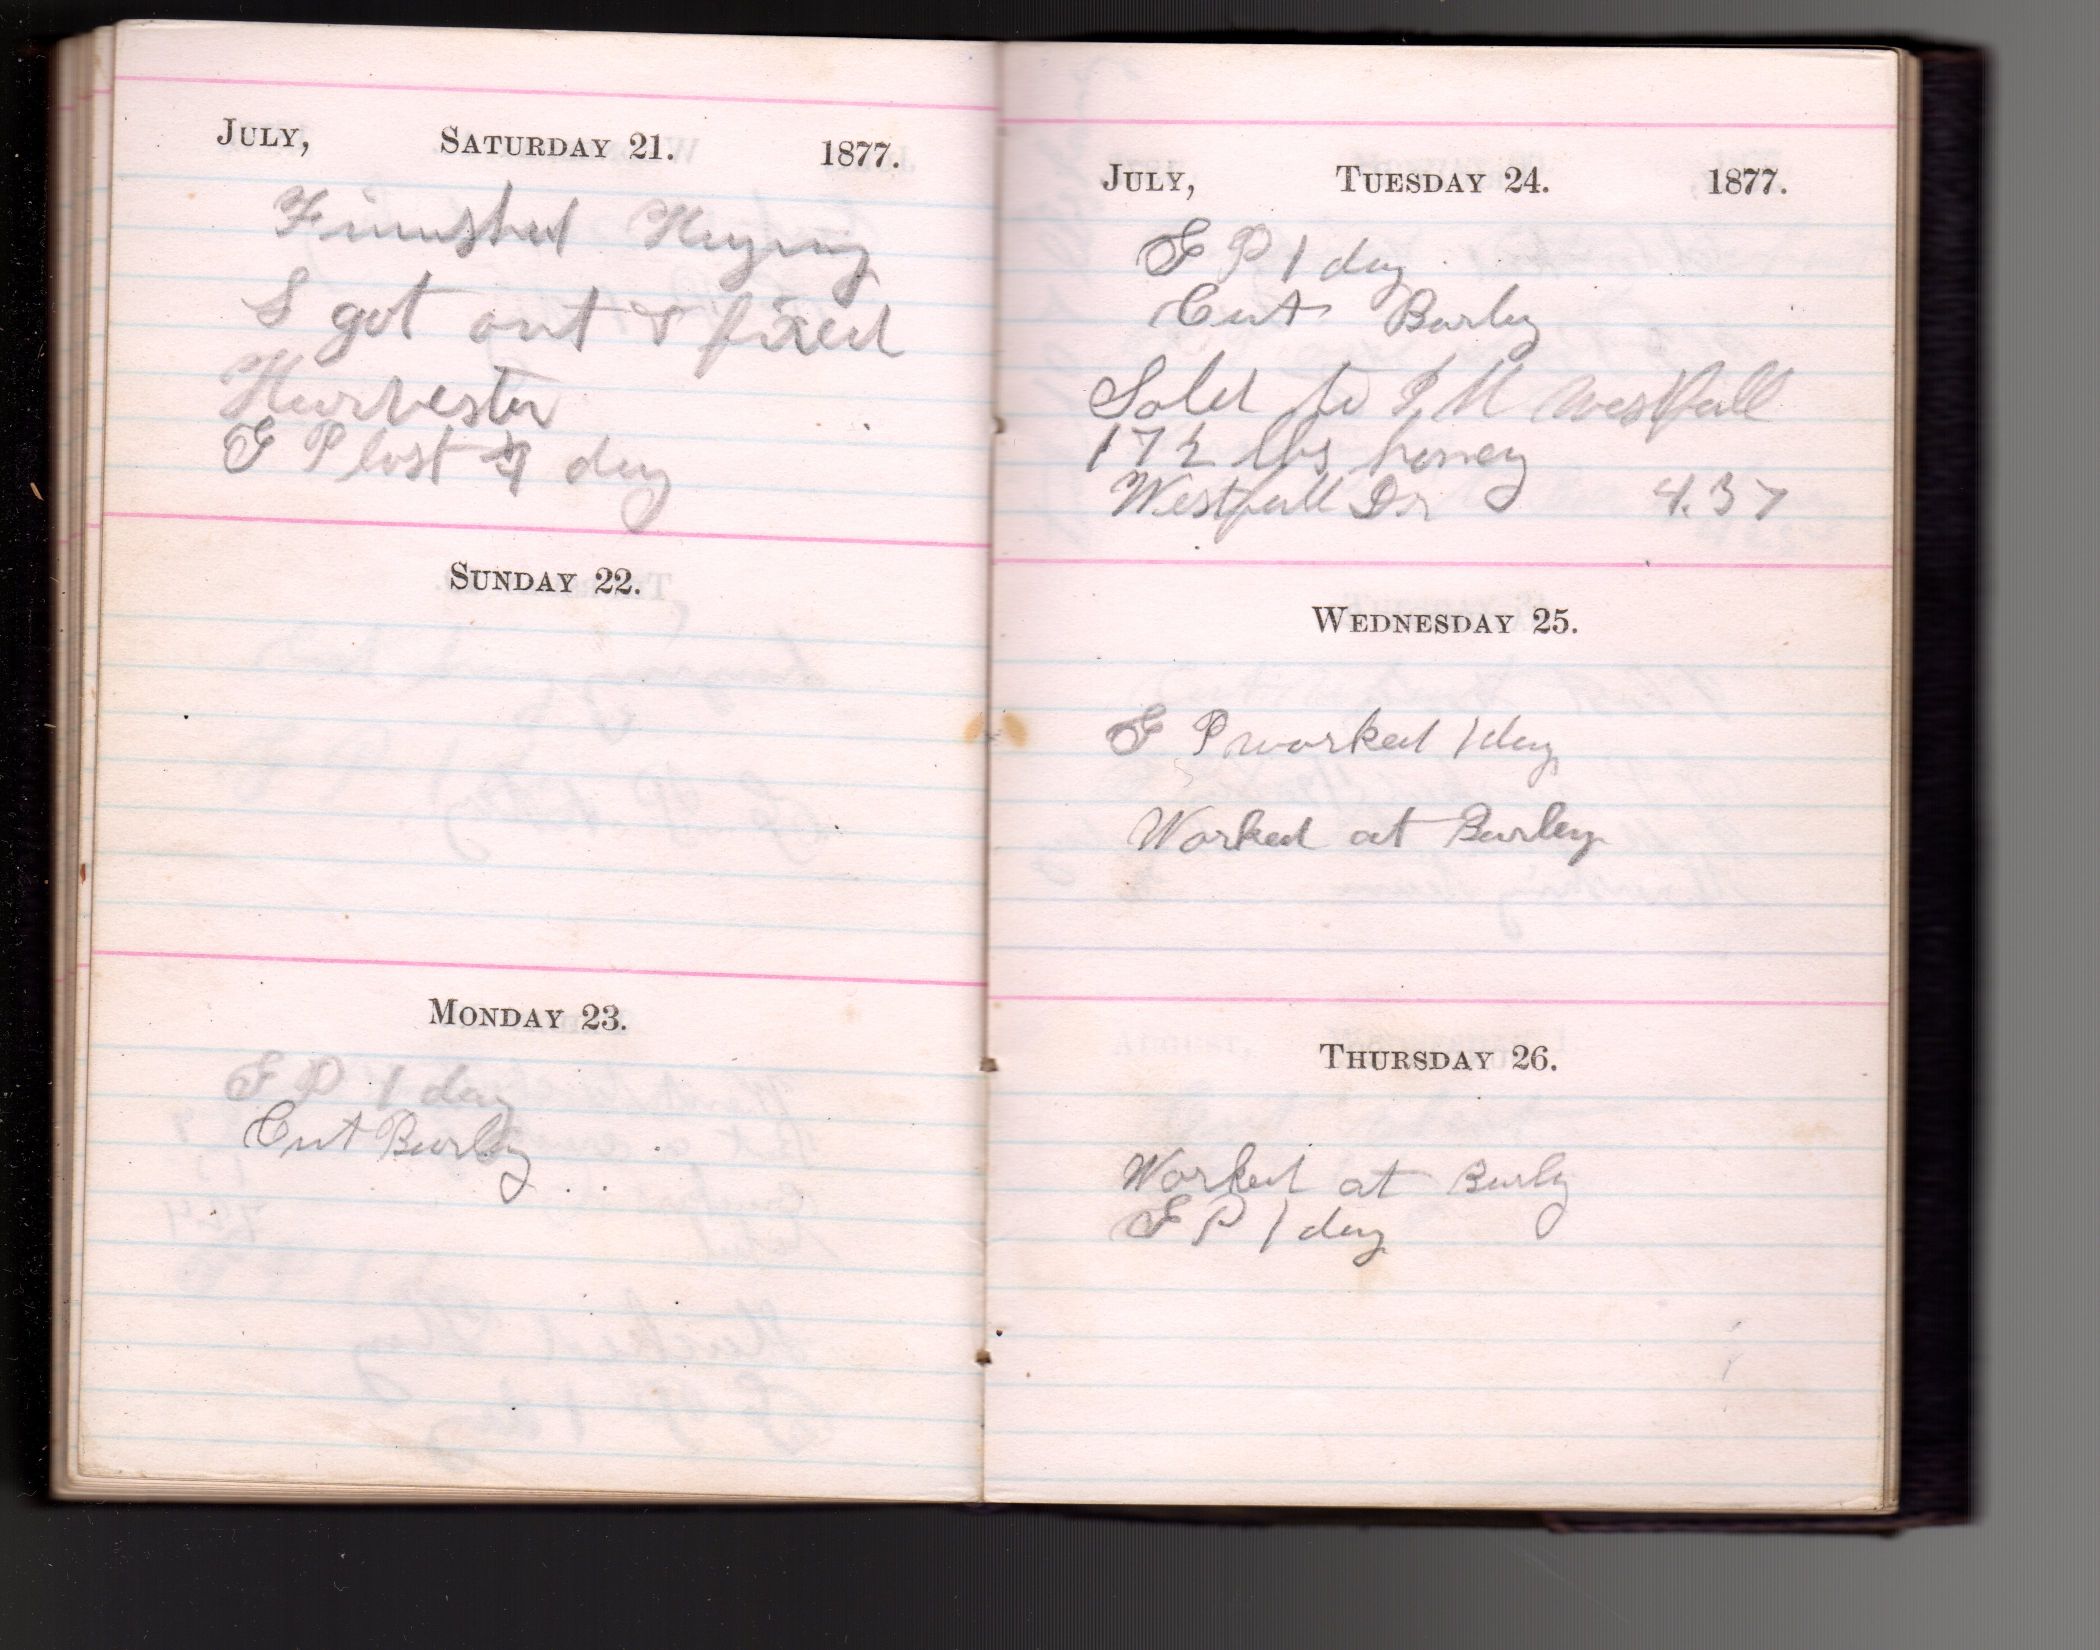 JULY, SATURDAY 21. 1877.
Finished Haying
I got out & fixed
Harvester
F P lost day
SUNDAY 22.
MONDAY 23.
F P 1 day
Cut Barley
JULY, TUESDAY 24. 1877.
F P 1 day
Cut Barley
Sold to M Westfall
17½ lbs honey
Westfall Dr 4.37
WEDNESDAY 25.
F P worked 1 day
Worked at Barley
THURSDAY 26.
Worked at Barly
F P 1 day